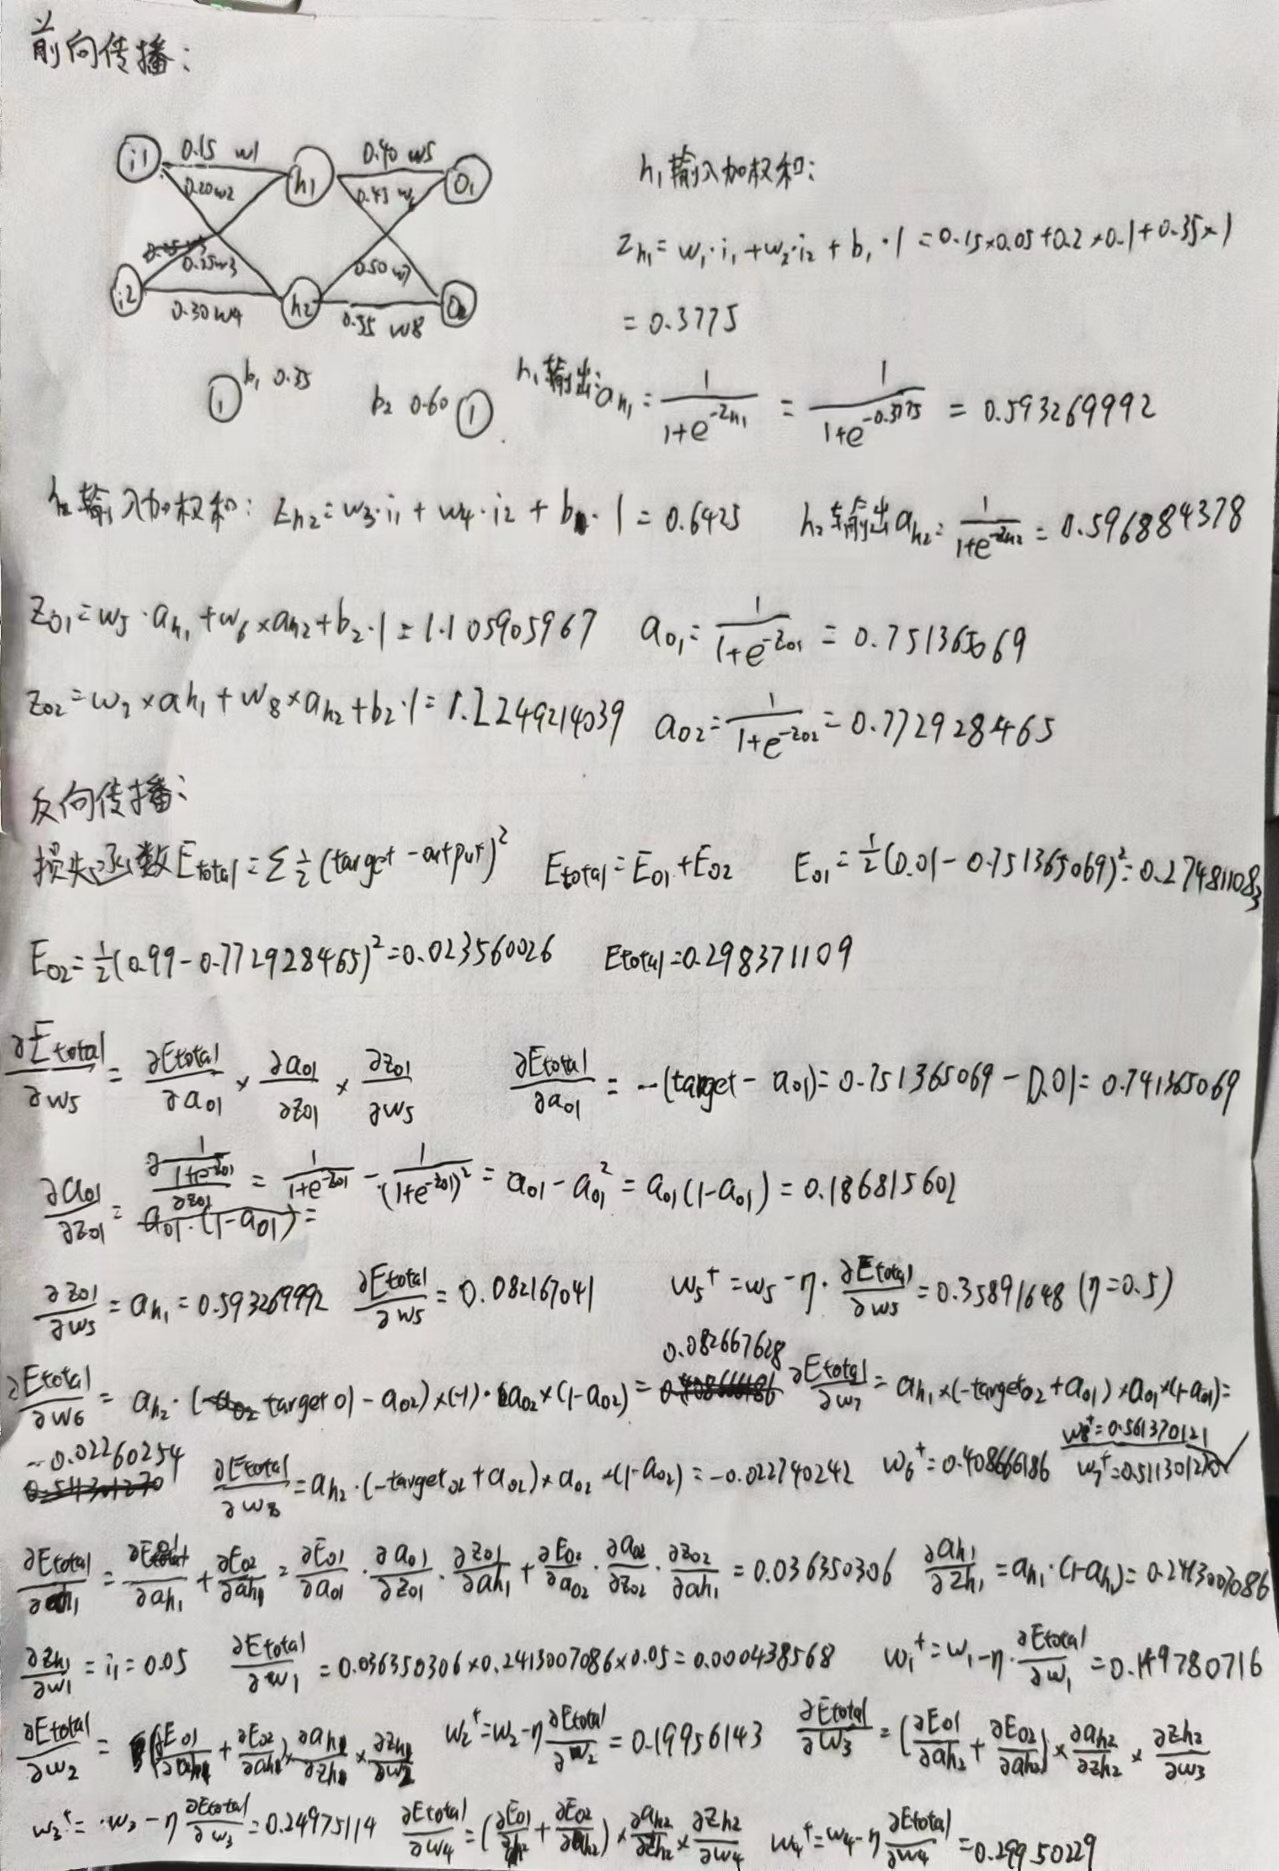 前向传播:
i1 0.15 w1 h1 0.40 w5 o1
0.20w2 0.45
0.25w3 0.50 w7
i2 0.30w4 h2 0.55 w8
1 b₁ 0.35 b₂ 0.60 1
h₁输入加权和:
z_h₁ = w₁·i₁ + w₂·i₂ + b₁·1 = 0.15×0.05+0.2×0.1+0.35×1
= 0.3775
h₁输出: a_h₁ = 1/(1+e^(-z_h₁)) = 1/(1+e^(-0.3775)) = 0.593269992
h₂输入加权和: z_h2 = w3·i₁ + w4·i2 + b·1 = 0.6425 h₂输出 a_h2 = 1/(1+e^(-z_h2)) = 0.596884378
z_01 = w5·a_h₁ + w6×a_h2 + b2·1 = 1.105905967 a_01 = 1/(1+e^(-z_01)) = 0.751365069
z_02 = w7×a_h₁ + w8×a_h2 + b2·1 = 1.2249214039 a_02 = 1/(1+e^(-z_02)) = 0.772928465
反向传播:
损失函数 E_total = Σ ½(target - output)² E_total = E_01 + E_02 E_01 = ½(0.01 - 0.751365069)² = 0.274811083
E_02 = ½(0.99 - 0.772928465)² = 0.023560026 E_total = 0.298371109
∂E_total/∂w5 = ∂E_total/∂a_01 × ∂a_01/∂z_01 × ∂z_01/∂w5 ∂E_total/∂a_01 = -(target - a_01) = 0.751365069 - 0.01 = 0.741365069
∂a_01/∂z_01 = ∂(1/(1+e^(-z_01)))/∂z_01 = 1/(1+e^(-z_01)) - 1/(1+e^(-z_01))² = a_01 - a_01² = a_01(1-a_01) = 0.186815602
∂z_01/∂w5 = a_h₁ = 0.593269992 ∂E_total/∂w5 = 0.082167041 w5⁺ = w5 - η·∂E_total/∂w5 = 0.35891648 (η=0.5)
∂E_total/∂w6 = a_h2·(target 01 - a_02)×(-1)·a_02×(1-a_02) = 0.082667628 ∂E_total/∂w7 = a_h₁×(-target_02 + a_01)×a_01×(1-a_01) =
-0.02260254 ∂E_total/∂w8 = a_h2·(-target_02 + a_02)×a_02×(1-a_02) = -0.022740242 w6⁺ = 0.408666186 w8⁺ = 0.561370121 w7⁺ = 0.511301270 √
∂E_total/∂ah₁ = ∂E_01/∂ah₁ + ∂E_02/∂ah₁ = ∂E_01/∂a_01·∂a_01/∂z_01·∂z_01/∂ah₁ + ∂E_02/∂a_02·∂a_02/∂z_02·∂z_02/∂ah₁ = 0.036350306 ∂ah₁/∂zh₁ = a_h₁·(1-a_h₁) = 0.2413007086
∂zh₁/∂w1 = i₁ = 0.05 ∂E_total/∂w1 = 0.036350306×0.2413007086×0.05 = 0.000438568 w1⁺ = w1 - η·∂E_total/∂w1 = 0.149780716
∂E_total/∂w2 = (∂E_01/∂ah₁ + ∂E_02/∂ah₁)×∂ah₁/∂zh₁×∂zh₁/∂w2 w2⁺ = w2 - η ∂E_total/∂w2 = 0.19956143 ∂E_total/∂w3 = (∂E_01/∂ah2 + ∂E_02/∂ah2)×∂ah2/∂zh2×∂zh2/∂w3
w3⁺ = w3 - η ∂E_total/∂w3 = 0.24975114 ∂E_total/∂w4 = (∂E_01/∂h2 + ∂E_02/∂ah2)×∂ah2/∂zh2×∂zh2/∂w4 w4⁺ = w4 - η ∂E_total/∂w4 = 0.29950229